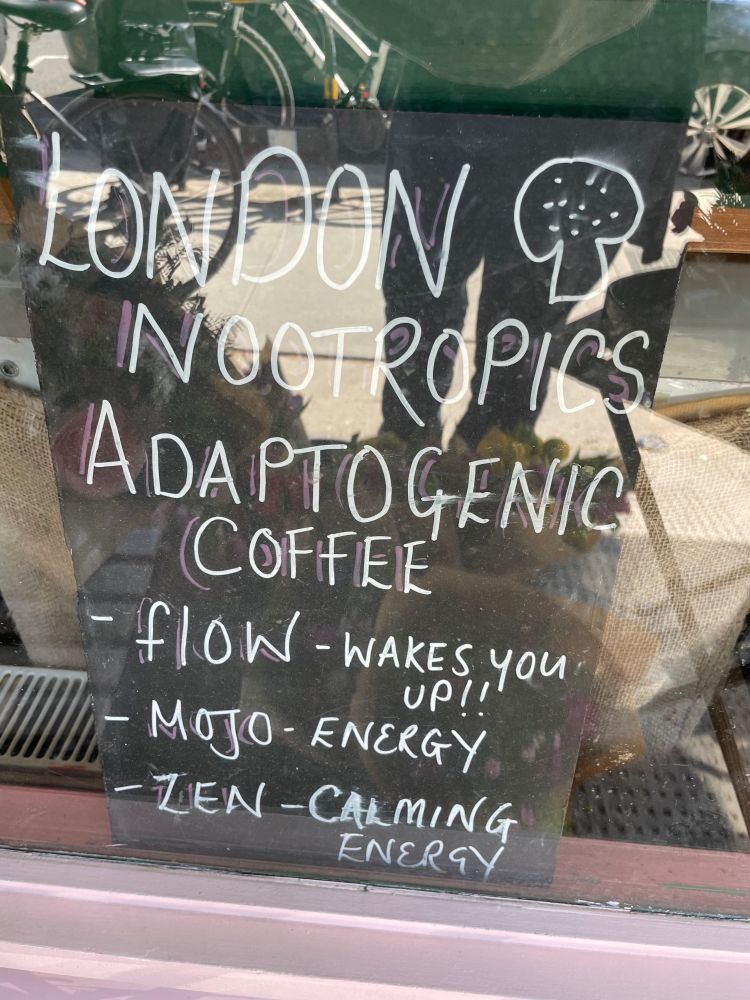 LONDON
NOOTROPICS
ADAPTOGENIC
COFFEE
- flow - WAKES YOU
UP!!
- MOJO - ENERGY
- ZEN - CALMING
ENERGY